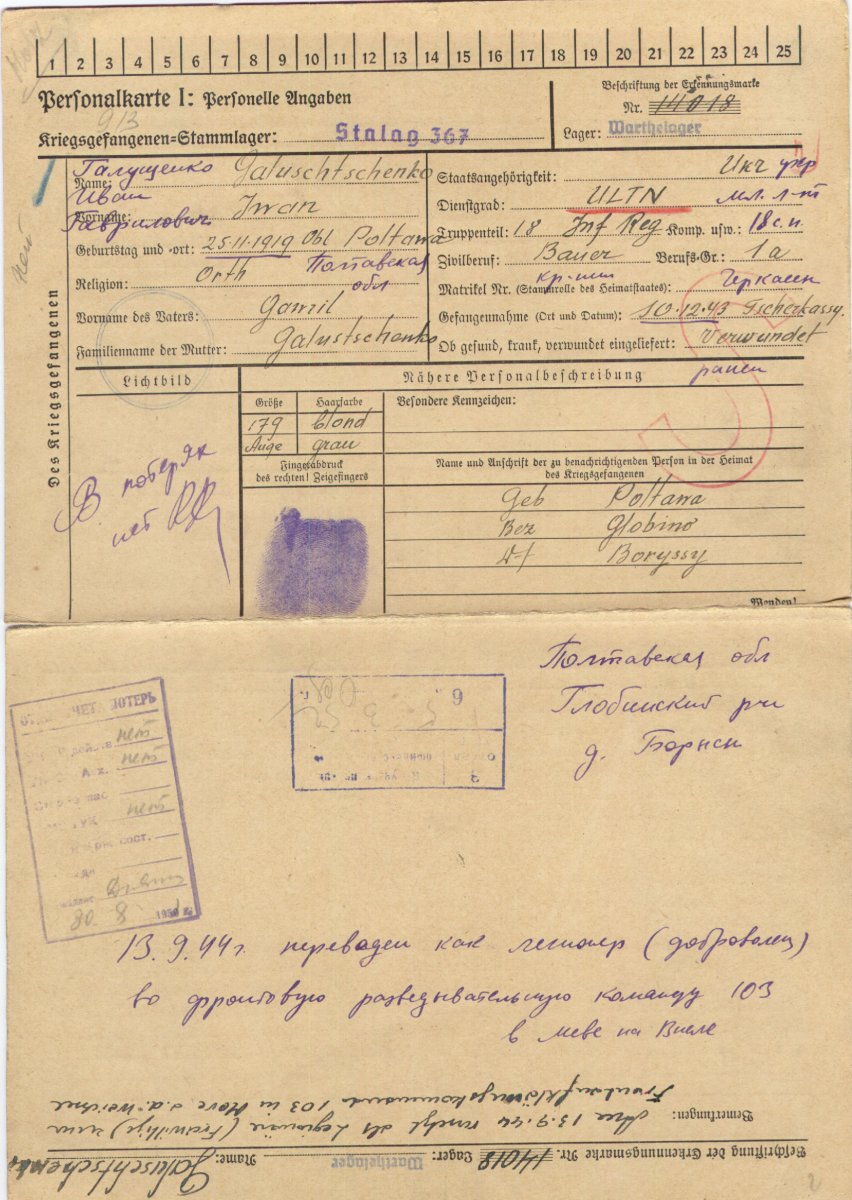 1 2 3 4 5 6 7 8 9 10 11 12 13 14 15 16 17 18 19 20 21 22 23 24 25
Personalkarte I: Personelle Angaben
Beschriftung der Erkennungsmarke
Nr. 14018
Kriegsgefangenen=Stammlager: Stalag 367
Lager: Warthelager
Des Kriegsgefangenen
Галущенко
Name: Galuschtschenko
Иван
Vorname: Iwan
Гаврилович
Geburtstag und -ort: 25.11.1919 Obl Poltawa
Полтавская обл
Religion: Orth
Vorname des Vaters: Gawril
Familienname der Mutter: Galustschenko
Staatsangehörigkeit: Ukr укр
Dienstgrad: ULTN мл. л-т
Truppenteil: 18 Inf Reg Komp. usw.: 18 с.п.
Zivilberuf: Bauer Berufs-Gr.: 1a
кр-нин
Matrikel Nr. (Stammrolle des Heimatstaates): Черкассы
Gefangennahme (Ort und Datum): 10.12.43 Tscherkassy.
Ob gesund, krank, verwundet eingeliefert: Verwundet
ранен
Lichtbild
В потерях
нет
Nähere Personalbeschreibung
Größe Haarfarbe
179 blond
Auge grau
Besondere Kennzeichen:
Fingerabdruck
des rechten! Zeigefingers
Name und Anschrift der zu benachrichtigenden Person in der Heimat
des Kriegsgefangenen
Geb Poltawa
Bez Globino
Df Boryssy
Wenden!
Полтавская обл
Глобинский рн
д. Борисы
УЧЕТА ПОТЕРЬ
нет
нет
нет
30 8 195
13.9.44г. переведен как легионер (доброволец)
во фронтовую разведывательную команду 103
в Меве на Висле
Beschriftung der Erkennungsmarke Nr. 14018 Lager: Warthelager Name: Galuschtschenko
Bemerkungen: Am 13.9.44 als Legionär (Freiwillige) zum
Frontaufklärungskommando 103 in Mewe a.d. Weichsel